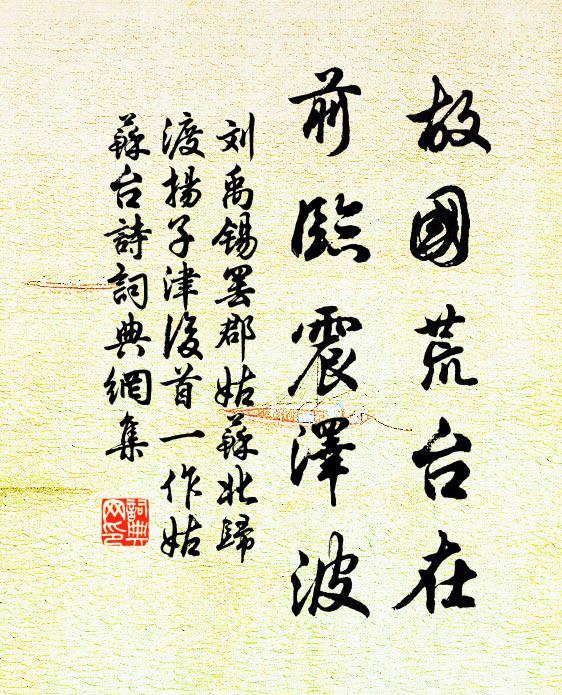 故國荒台在
前臨震澤波
刘禹锡罢郡姑蘇北歸
渡揚子津後首一作姑
蘇台詩詞典網集
詞典网印